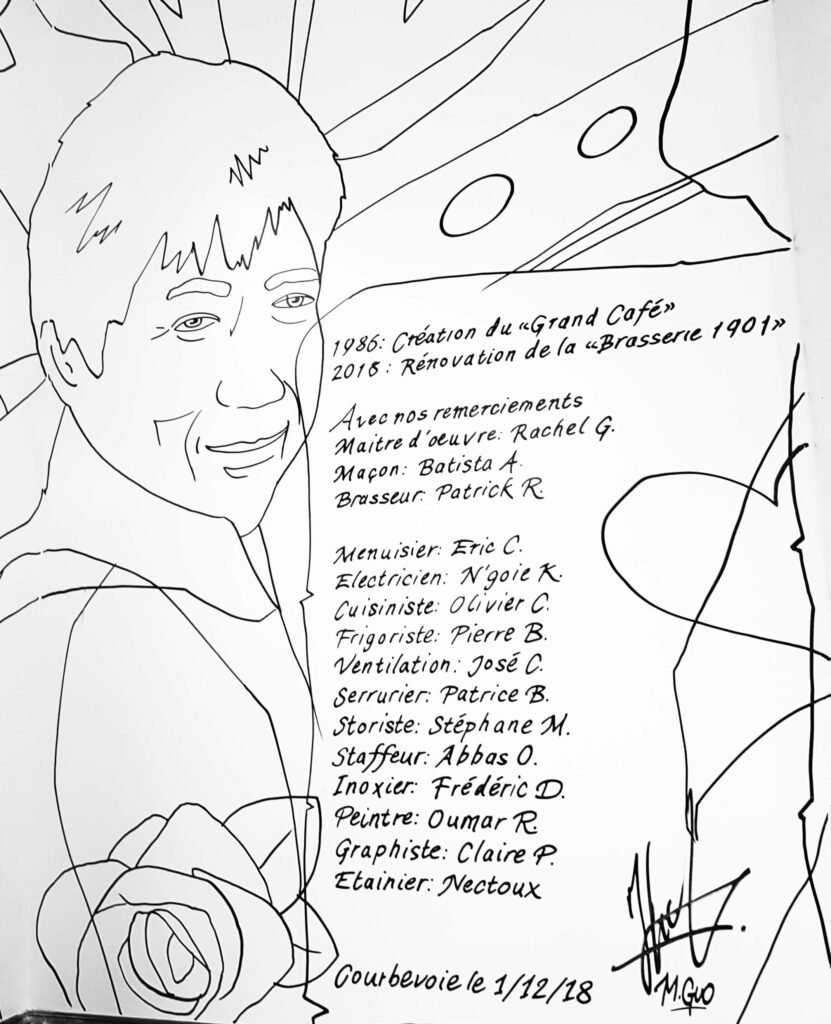 1986: Création du «Grand Café»
2018: Rénovation de la «Brasserie 1901»
Avec nos remerciements
Maitre d'œuvre: Rachel G.
Maçon: Batista A.
Brasseur: Patrick R.
Menuisier: Eric C.
Electricien: N'goie K.
Cuisiniste: Olivier C.
Frigoriste: Pierre B.
Ventilation: José C.
Serrurier: Patrice B.
Storiste: Stéphane M.
Staffeur: Abbas O.
Inoxier: Frédéric D.
Peintre: Oumar R.
Graphiste: Claire P.
Etainier: Nectoux
Courbevoie le 1/12/18
M.GUO